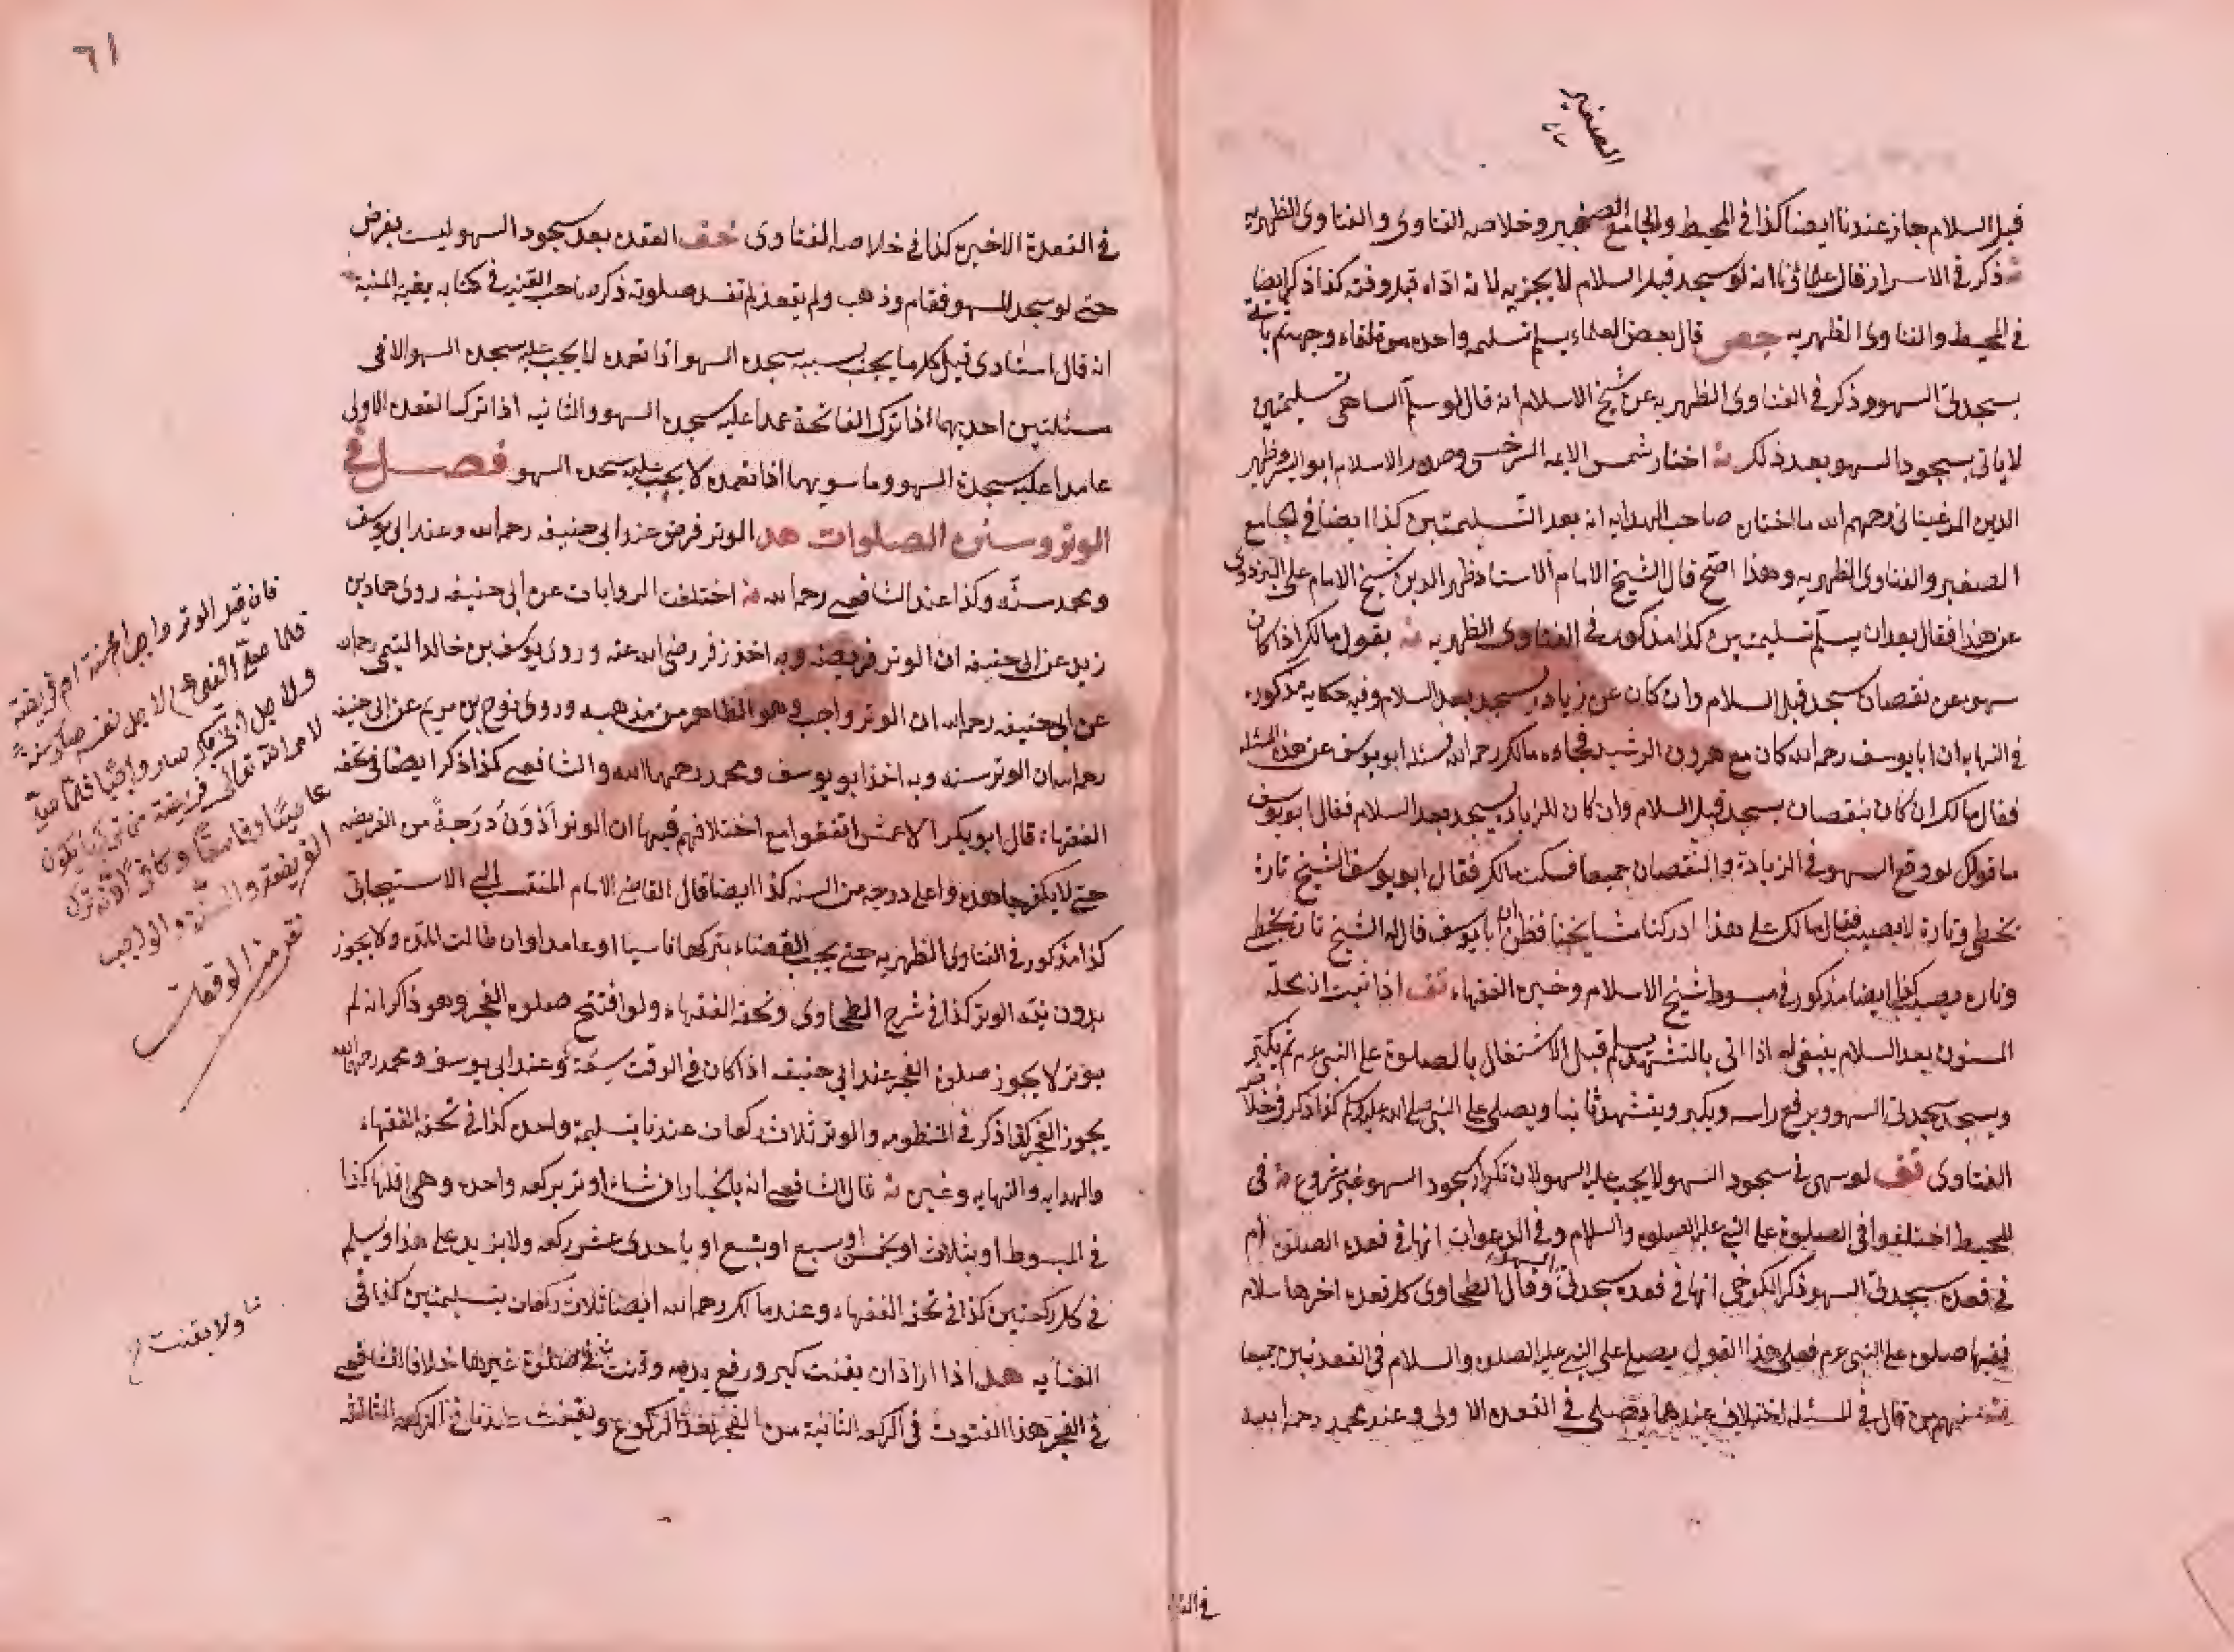 الصغير
قبل السلام جاز عندنا ايضا كذا في المحيط والجامع الصغير وخلاصه الفتاوى والفتاوى الظهريه
ذكر في الاسرار قال علماؤنا انه لو سجد قبل السلام لا يجزيه لانه اداه قبل وقته كذا ذكر ايضا
في المحيط والفتاوى الظهريه جص قال بعض العلماء يسلم تسليمه واحده من تلقاء وجهه ثم ياتى
بسجدتى السهو وذكر في الفتاوى الظهريه عن شيخ الاسلام انه قال لو سلم الساهى تسليمتين
لا ياتى بسجود السهو بعد ذلك اختار شمس الايمه السرخسى وصدر الاسلام ابو اليسر وظهير
الدين المرغينانى رحمهم الله ما اختان صاحب الهدايه انه بعد التسليمتين كذا ايضا في الجامع
الصغير والفتاوى الظهريه وهذا اصح قال الشيخ الامام الاستاد ظهر الدين شيخ الامام على البزدوى
عن هذا فقال بعد ان يسلم تسليمتين كذا مذكور في الفتاوى الظهريه يقول مالك اذا كان
سهو عن نقصان سجد قبل السلام وان كان عن زيادة يسجد بعد السلام وفيه حكايه مذكوره
في النهايه ان ابا يوسف رحمه الله كان مع هرون الرشيد فجاءه مالك رحمه الله فسئله ابو يوسف عن هذه المسئله
فقال مالك ان كان بنقصان يسجد قبل السلام وان كان للزيادة يسجد بعد السلام فقال ابو يوسف
ما قولك لو وقع السهو في الزيادة والنقصان جميعا فسكت مالك فقال ابو يوسف الشيخ تارة
يخطى وتارة لا يصيب فقال مالك على هذا ادركنا مشايخنا فظن ان ابا يوسف قال له الشيخ تارة يخطى
وتاره يصيب كذا ايضا مذكور في مبسوط شيخ الاسلام وخيره الفقهاء تف اذا ثبت ان محله
المسنون بعد السلام ينبغى له اذا اتى بالتشهد يسلم قبل الاشتغال بالصلوة على النبى عم ثم يكبر
ويسجد سجدتى السهو ويرفع راسه ويكبر ويتشهد ثانيا ويصلى على النبى صلى الله عليه وسلم كذا ذكر في خلاصه
الفتاوى تف لو سهى في سجود السهو لا يجب عليه السهو لان تكرار سجود السهو غير مشروع في
المحيط اختلفوا في الصلوة على النبى عليه الصلوه والسلام وفي الدعوات انها في قعده الصلوة ام
في قعده سجدتى السهو ذكر الكرخى انها في قعده سجدتى السهو وقال الطحاوى كل قعده اخرها سلام
ففيها صلوه على النبى عم فعلى هذا القول يصلى على النبى عليه الصلوه والسلام في القعدتين جميعا
منهم من قال في المسئله اختلاف عندهما يصلى في القعده الاولى وعند محمد رحمه الله
في القا
٦١
في القعدة الاخيره كذا في خلاصه الفتاوى خف القعده بعد سجود السهو ليست بفرض
حتى لو سجد للسهو فقام وذهب ولم يقعد لم تفسد صلوته ذكر صاحب القنيه في كتابه بغيه المنية
انه قال استادى قيل كل ما يجب بسببه سجده السهو اذا تعمد لا يجب عليه سجده السهو الا في
مسئلتين احديهما اذا ترك الفاتحة عمدا عليه سجده السهو والثانيه اذا ترك القعده الاولى
عامدا عليه سجدة السهو وما سويهما اذا تعمد لا يجب عليه سجده السهو فصل في
الوتر وسنن الصلوات هد الوتر فرض عند ابى حنيفه رحمه الله وعند ابى يوسف
ومحمد سنّه وكذا عند الشافعى رحمه الله اختلفت الروايات عن ابى حنيفه روى حماد بن
زيد عن ابى حنيفه ان الوتر فريضه وبه اخذ زفر رضى الله عنه وروى يوسف بن خالد التيمى رحمه الله
عن ابى حنيفه رحمه الله ان الوتر واجب وهو الظاهر من مذهبه وروى نوح بن مريم عن ابى حنيفه
رحمه الله ان الوتر سنه وبه اخذ ابو يوسف ومحمد رحمهما الله والشافعى كذا ذكر ايضا في تحفه
الفقهاء قال ابو بكر الاعمش اتفقوا مع اختلافهم فيها ان الوتر اَدْوَن دَرَجةً من الفريضه
حتى لا يكفر جاهده واعلى درجه من السنه كذا ايضا قال القاضى الامام المنتسب الى الاستيجابى
كذا مذكور في الفتاوى الظهريه حتى يجب القضاء بتركها ناسيا او عامدا وان طالت المده ولا يجوز
بدون نيّه الوتر كذا في شرح الطحاوى وتحفه الفقهاء ولو افتتح صلوه الفجر وهو ذاكر انه لم
يوتر لا يجوز صلوة الفجر عند ابى حنيفه اذا كان في الوقت سعَة وعند ابى يوسف ومحمد رحمهما الله
يجوز الفجر كذا ذكر في المنظومه والوتر ثلاث ركعات عندنا بتسليمة واحده كذا في تحفه الفقهاء
والهدايه والنهايه وغيره قال الشافعى انه بالخيار ان شاء اوتر بركعه واحده وهى اقلها كذا
في المبسوط او بثلاث او بخمس او بسبع او بتسع او باحدى عشر ركعه ولا يزيد على هذا ويسلم
في كل ركعتين كذا في تحفه الفقهاء وعند مالك رحمه الله ايضا ثلاث ركعات بتسليمتين كذا في
النهايه هد اذا اراد ان يقنت كبر ورفع يديه وقنت في صلوة غيرها خلافا للشافعى
في الفجر هذا القنوت في الركعه الثانية من الفجر بعد الركوع ويقنت عندنا في الركعه الثالثه
فان قيل الوتر واجب ام سنة ام فريضة
قلنا صلى النبى عم لاجل نفسه صار سنةً
ولاجل صار واجبا فلما
لامر الله تعالى فريضة يكون
عاصيًا وفاسقًا وكافرًا لانه ترك
الفريضة والسنّه والواجب
نقر من الوقعات
ولا يقنت